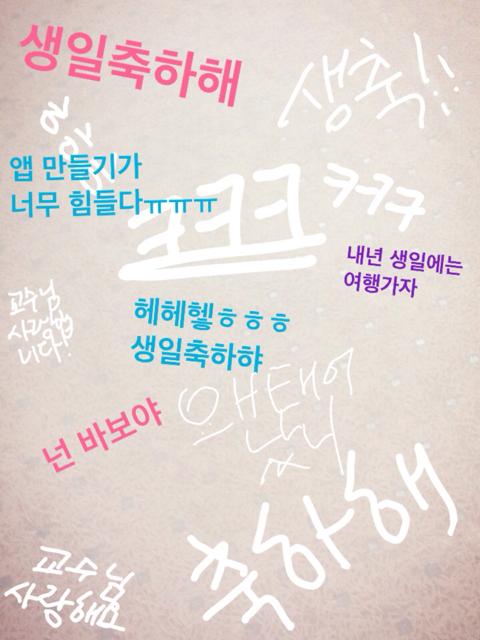 생일축하해
생축!!
앱 만들기가
너무 힘들다ㅠㅠㅠ
ㅋㅋㅋ
ㅋㅋㅋ
내년 생일에는
여행가자
교수님
사랑합
니다!
헤헤헿ㅎㅎㅎ
생일축하햐
왜 태어
났니
넌 바보야
축하해
교수님
사랑해요